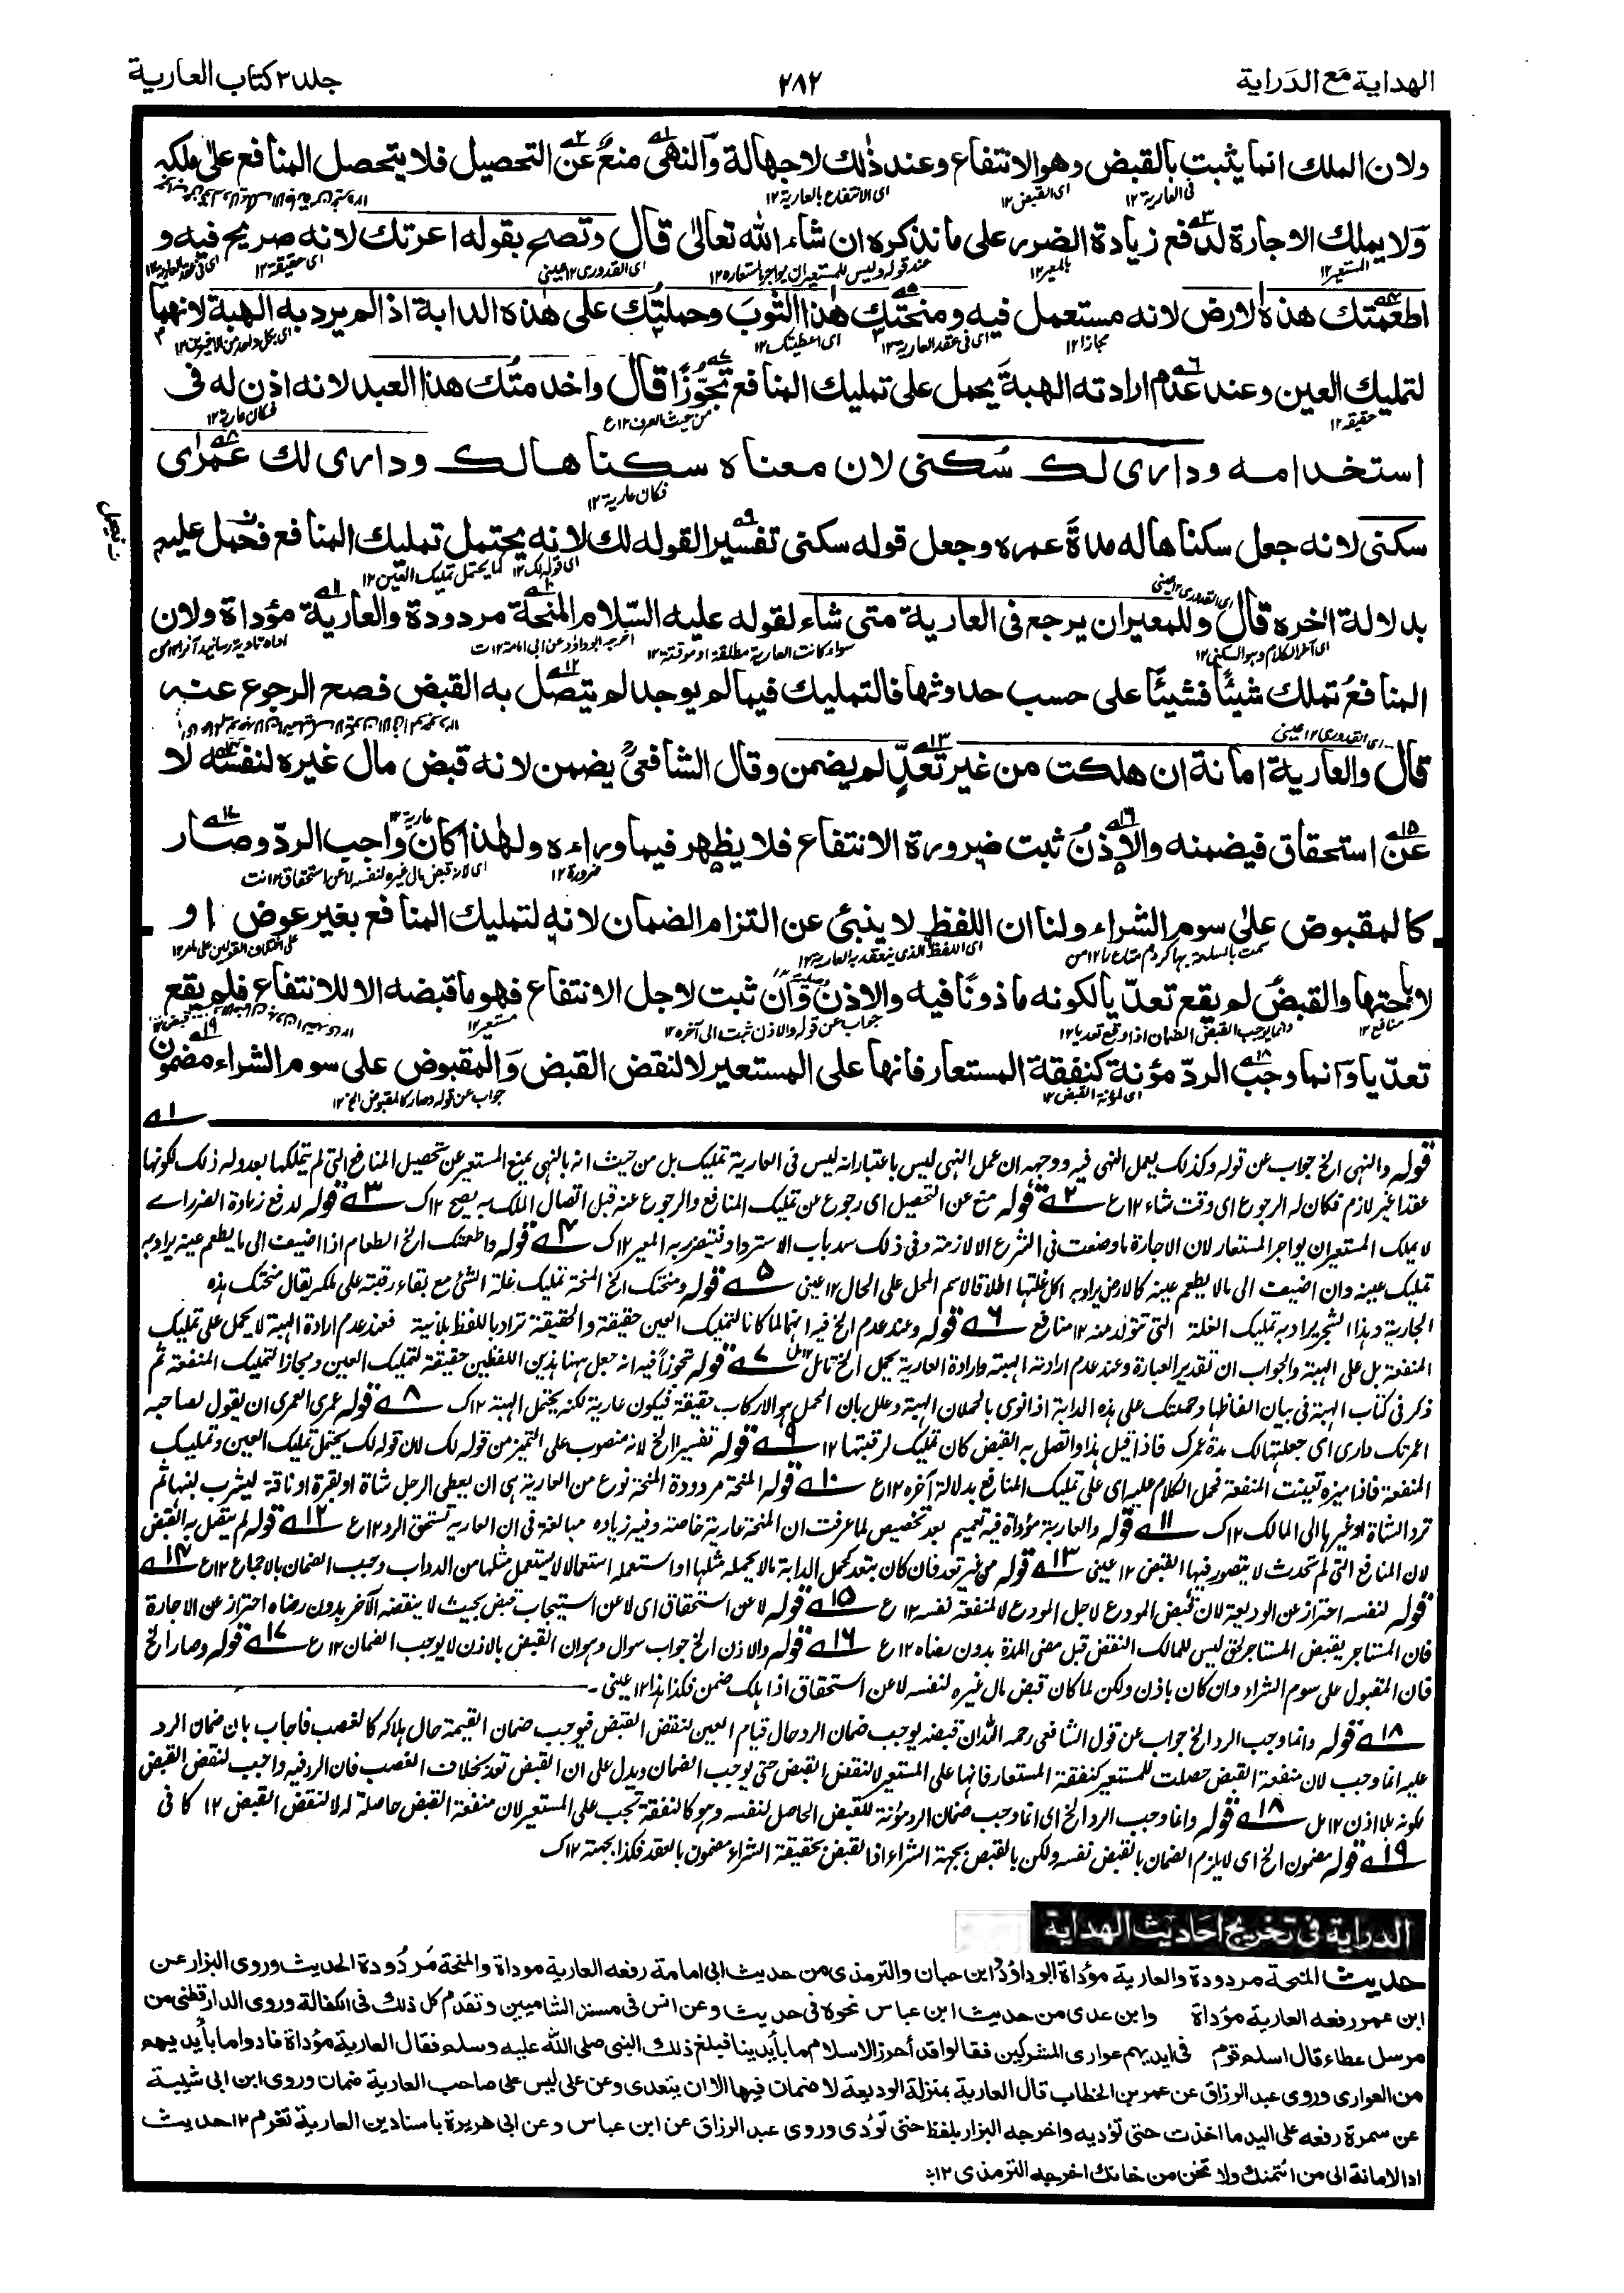 الهداية مع الدراية
٢٨٢
جلد ٣ كتاب العارية
ولان الملك انما يثبت بالقبض وهو الانتفاع وعند ذلك لا جهالة والنهى منع عن التحصيل فلا يتحصل المنافع على ملكه
ولا يملك الاجارة لدفع زيادة الضرر على ما نذكره ان شاء الله تعالى قال وتصح بقوله اعرتك لانه صريح فيه و
اطعمتك هذه الارض لانه مستعمل فيه ومنحتك هذا الثوب وحملتك على هذه الدابة اذا لم يرد به الهبة لانهما
لتمليك العين وعند عدم ارادته الهبة يحمل على تمليك المنافع تجوّزًا قال واخدمتك هذا العبد لانه اذن له فى
استخدامه ودارى لك سُكنى لان معناه سكناها لك ودارى لك عمرى
سكنى لانه جعل سكناها له مدة عمره وجعل قوله سكنى تفسيرا لقوله لك لانه يحتمل تمليك المنافع فحُمل عليه
بدلالة اخره قال وللمعير ان يرجع فى العارية متى شاء لقوله عليه السّلام المنحة مردودة والعارية مؤداة ولان
المنافعُ تملك شيئًا فشيئًا على حسب حدوثها فالتمليك فيما لم يوجد لم يتصل به القبض فصح الرجوع عنه
قال والعارية امانة ان هلكت من غير تعدٍّ لم يضمن وقال الشافعى يضمن لانه قبض مال غيره لنفسه لا
عن استحقاق فيضمنه والإذن ثبت ضرورة الانتفاع فلا يظهر فيما وراءه ولهذا كان واجب الردّ وصار
كالمقبوض على سوم الشراء ولنا ان اللفظ لا ينبئ عن التزام الضمان لانه لتمليك المنافع بغير عوض او
لاباحتها والقبض لم يقع تعدّيا لكونه ماذونًا فيه والاذن وان ثبت لاجل الانتفاع فهو ما قبضه الا للانتفاع فلم يقع
تعدّيا وانما وجب الردّ مؤنة كنفقة المستعار فانها على المستعير لا لنقض القبض والمقبوض على سوم الشراء مضمون
١ه
قوله والنهى الخ جواب عن قوله وكذلك يعمل النهى فيه ووجهه ان عمل النهى ليس باعتبار انه ليس فى العارية تمليك بل من حيث انه بالنهى يمنع المستعير عن تحصيل المنافع التى لم يتملكها بعد وله ذلك لكونها
عقدا غير لازم فكان له الرجوع اى وقت شاء ١٢ع ٢ه قوله منع عن التحصيل اى رجوع عن تمليك المنافع والرجوع عنه قبل اتصال الملك به يصح ١٢ك ٣ه قوله لدفع زيادة الضرر اے
لا يملك المستعير ان يواجر المستعار لان الاجارة ما وضعت فى الشرع الا لازمة وفى ذلك سد باب الاسترداد فيتضرر به المعير ١٢ك ٤ه قوله واطعمتك الخ الطعام اذا اضيف الى ما يطعم عينه يراد به
تمليك عينه وان اضيفت الى ما لا يطعم عينه كالارض يراد به اكل غلتها اطلاقا لاسم المحل على الحال ١٢ عينى ٥ه قوله ومنحتك الخ المنحة تمليك غلة الشئ مع بقاء رقبته على ملكه يقال منحتك هذه
الجارية وهذا الشجر يراد به تمليك الغلة التى تتولد منه ١٢ منافع ٦ه قوله وعند عدم الخ فيه انهما لما كانا لتمليك العين حقيقة والحقيقة تراد باللفظ بلا نية فعند عدم ارادة الهبة لا يحمل على تمليك
المنفعة بل على الهبة والجواب ان تقدير العبارة وعند عدم ارادته الهبة وارادة العارية يحمل الخ تامل ١٢ ٧ه قوله تجوزاً فيه انه جعل ههنا هذين اللفظين حقيقة لتمليك العين ومجازا لتمليك المنفعة ثم
ذكر فى كتاب الهبة فى بيان الفاظها وحملتك على هذه الدابة اذا نوى بالحملان الهبة وعلل بان الحمل هو الاركاب حقيقة فيكون عارية لكنه يحتمل الهبة ١٢ك ٨ه قوله عمرى العمرى ان يقول لصاحبه
اعمرتك دارى اى جعلتها لك مدة عمرك فاذا قيل هذا واتصل به القبض كان تمليك لرقبتها ١٢ ٩ه قوله تفسيرا الخ لانه منصوب على التميز من قوله لك لان قوله لك يحتمل تمليك العين وتمليك
المنفعة فاذا ميزه تعينت المنفعة فحمل الكلام عليه اى على تمليك المنافع بدلالة آخره ١٢ع ١٠ه قوله المنحة مردودة المنحة نوع من العارية هى ان يعطى الرجل شاة او بقرة او ناقة ليشرب لبنها ثم
ترد الشاة او غيرها الى المالك ١٢ك ١١ه قوله والعارية مؤداة فيه تعميم بعد تخصيص لما عرفت ان المنحة عارية خاصة وفيه زياده مبالغة فى ان العارية تستحق الرد ١٢ع ١٢ه قوله لم يتصل به القبض
لان المنافع التى لم تحدث لا يتصور فيها القبض ١٢ عينى ١٣ه قوله من غير تعد فان كان بتعد كحمل الدابة ما لا يحمله مثلها او استعمله استعمالا لا يستعمل مثلها من الدواب وجب الضمان بالاجماع ١٢ع ١٤ه
قوله لنفسه احتراز عن الوديعة لان قبض المودع لاجل المودع لا لمنفعة نفسه ١٢ع ١٥ه قوله لا عن استحقاق اى لا عن استيجاب قبض بحيث لا ينقضه الآخر بدون رضاه احتراز عن الاجارة
فان المستاجر يقبض المستاجر لحق ليس للمالك النقض قبل مضى المدة بدون رضاه ١٢ع ١٦ه قوله والاذن الخ جواب سوال وهو ان القبض بالاذن لا يوجب الضمان ١٢ع ١٧ه قوله وصار الخ
فان المقبول على سوم الشراء وان كان باذن ولكن لما كان قبض مال غيره لنفسه لا عن استحقاق اذا هلك ضمن فكذا هذا ١٢ عينى -
١٨ه قوله وانما وجب الرد الخ جواب عن قول الشافعى رحمه الله ان قبضه يوجب ضمان الرد حال قيام العين لنقض القبض فيوجب ضمان القيمة حال هلاكه كالغصب فاجاب بان ضمان الرد
عليه انما وجب لان منفعة القبض حصلت للمستعير كنفقة المستعار فانها على المستعير لا لنقض القبض حتى يوجب الضمان ويدل على ان القبض تعد بخلاف الغصب فان الرد فيه واجب لنقض القبض
لكونه بلا اذن ١٢ مل ١٨ه قوله وانما وجب الرد الخ اى انما وجب ضمان الرد مؤنة للقبض الحاصل لنفسه وهو كالنفقة تجب على المستعير لان منفعة القبض حاصلة له لا لنقض القبض ١٢ كافى
١٩ه قوله مضمون الخ اى لا يلزم الضمان بالقبض نفسه ولكن بالقبض بجهة الشراء اذ القبض بحقيقة الشراء مضمون بالعقد فكذا بجهته ١٢ك
الدراية فى تخريج احاديث الهداية
حديث المنحة مردودة والعارية مؤداة ابو داؤد وابن حبان والترمذى من حديث ابى امامة رفعه العارية موداة والمنحة مَردُودة الحديث وروى البزار عن
ابن عمر رفعه العارية مؤداة وابن عدى من حديث ابن عباس نحوه فى حديث وعن انس فى مسند الشاميين وتقدم كل ذلك فى الكفالة وروى الدارقطنى من
مرسل عطاء قال اسلم قوم فى ايديهم عوارى المشركين فقالوا قد أحرز الاسلام ما بأيدينا فبلغ ذلك النبى صلى الله عليه وسلم فقال العارية مؤداة فادوا ما بأيديهم
من العوارى وروى عبد الرزاق عن عمر بن الخطاب قال العارية بمنزلة الوديعة لا ضمان فيها الا ان يتعدى وعن على ليس على صاحب العارية ضمان وروى ابن ابى شيبة
عن سمرة رفعه على اليد ما اخذت حتى تؤديه واخرجه البزار بلفظ حتى تؤدى وروى عبد الرزاق عن ابن عباس وعن ابى هريرة باسنادين العارية تغرم ١٢ حديث
اد الامانة الى من ائتمنك ولا تخن من خانك اخرجه الترمذى ١٢